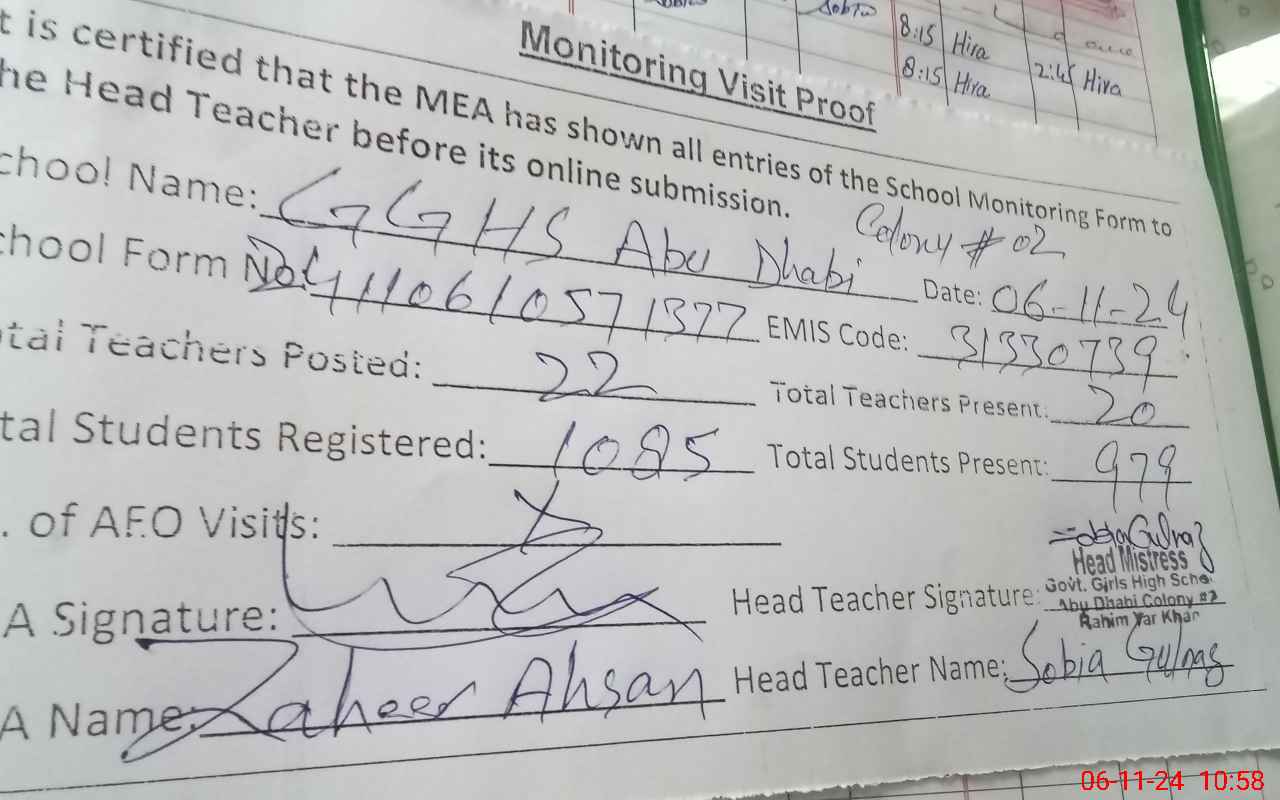 8:15 Hira
8:15 Hira 2:45 Hira
Monitoring Visit Proof
t is certified that the MEA has shown all entries of the School Monitoring Form to
he Head Teacher before its online submission.
chool Name: GGHS Abu Dhabi Colony # 02 Date: 06-11-24
chool Form No: 4110610571377 EMIS Code: 31330739
tal Teachers Posted: 22 Total Teachers Present: 20
tal Students Registered: 1085 Total Students Present: 979
. of AEO Visits:
A Signature: Head Teacher Signature:
Sobia Gulnaz
Head Mistress
Govt. Girls High Scho
Abu Dhabi Colony #2
Rahim Yar Khan
A Name: Zaheer Ahsan Head Teacher Name: Sobia Gulnaz
06-11-24 10:58